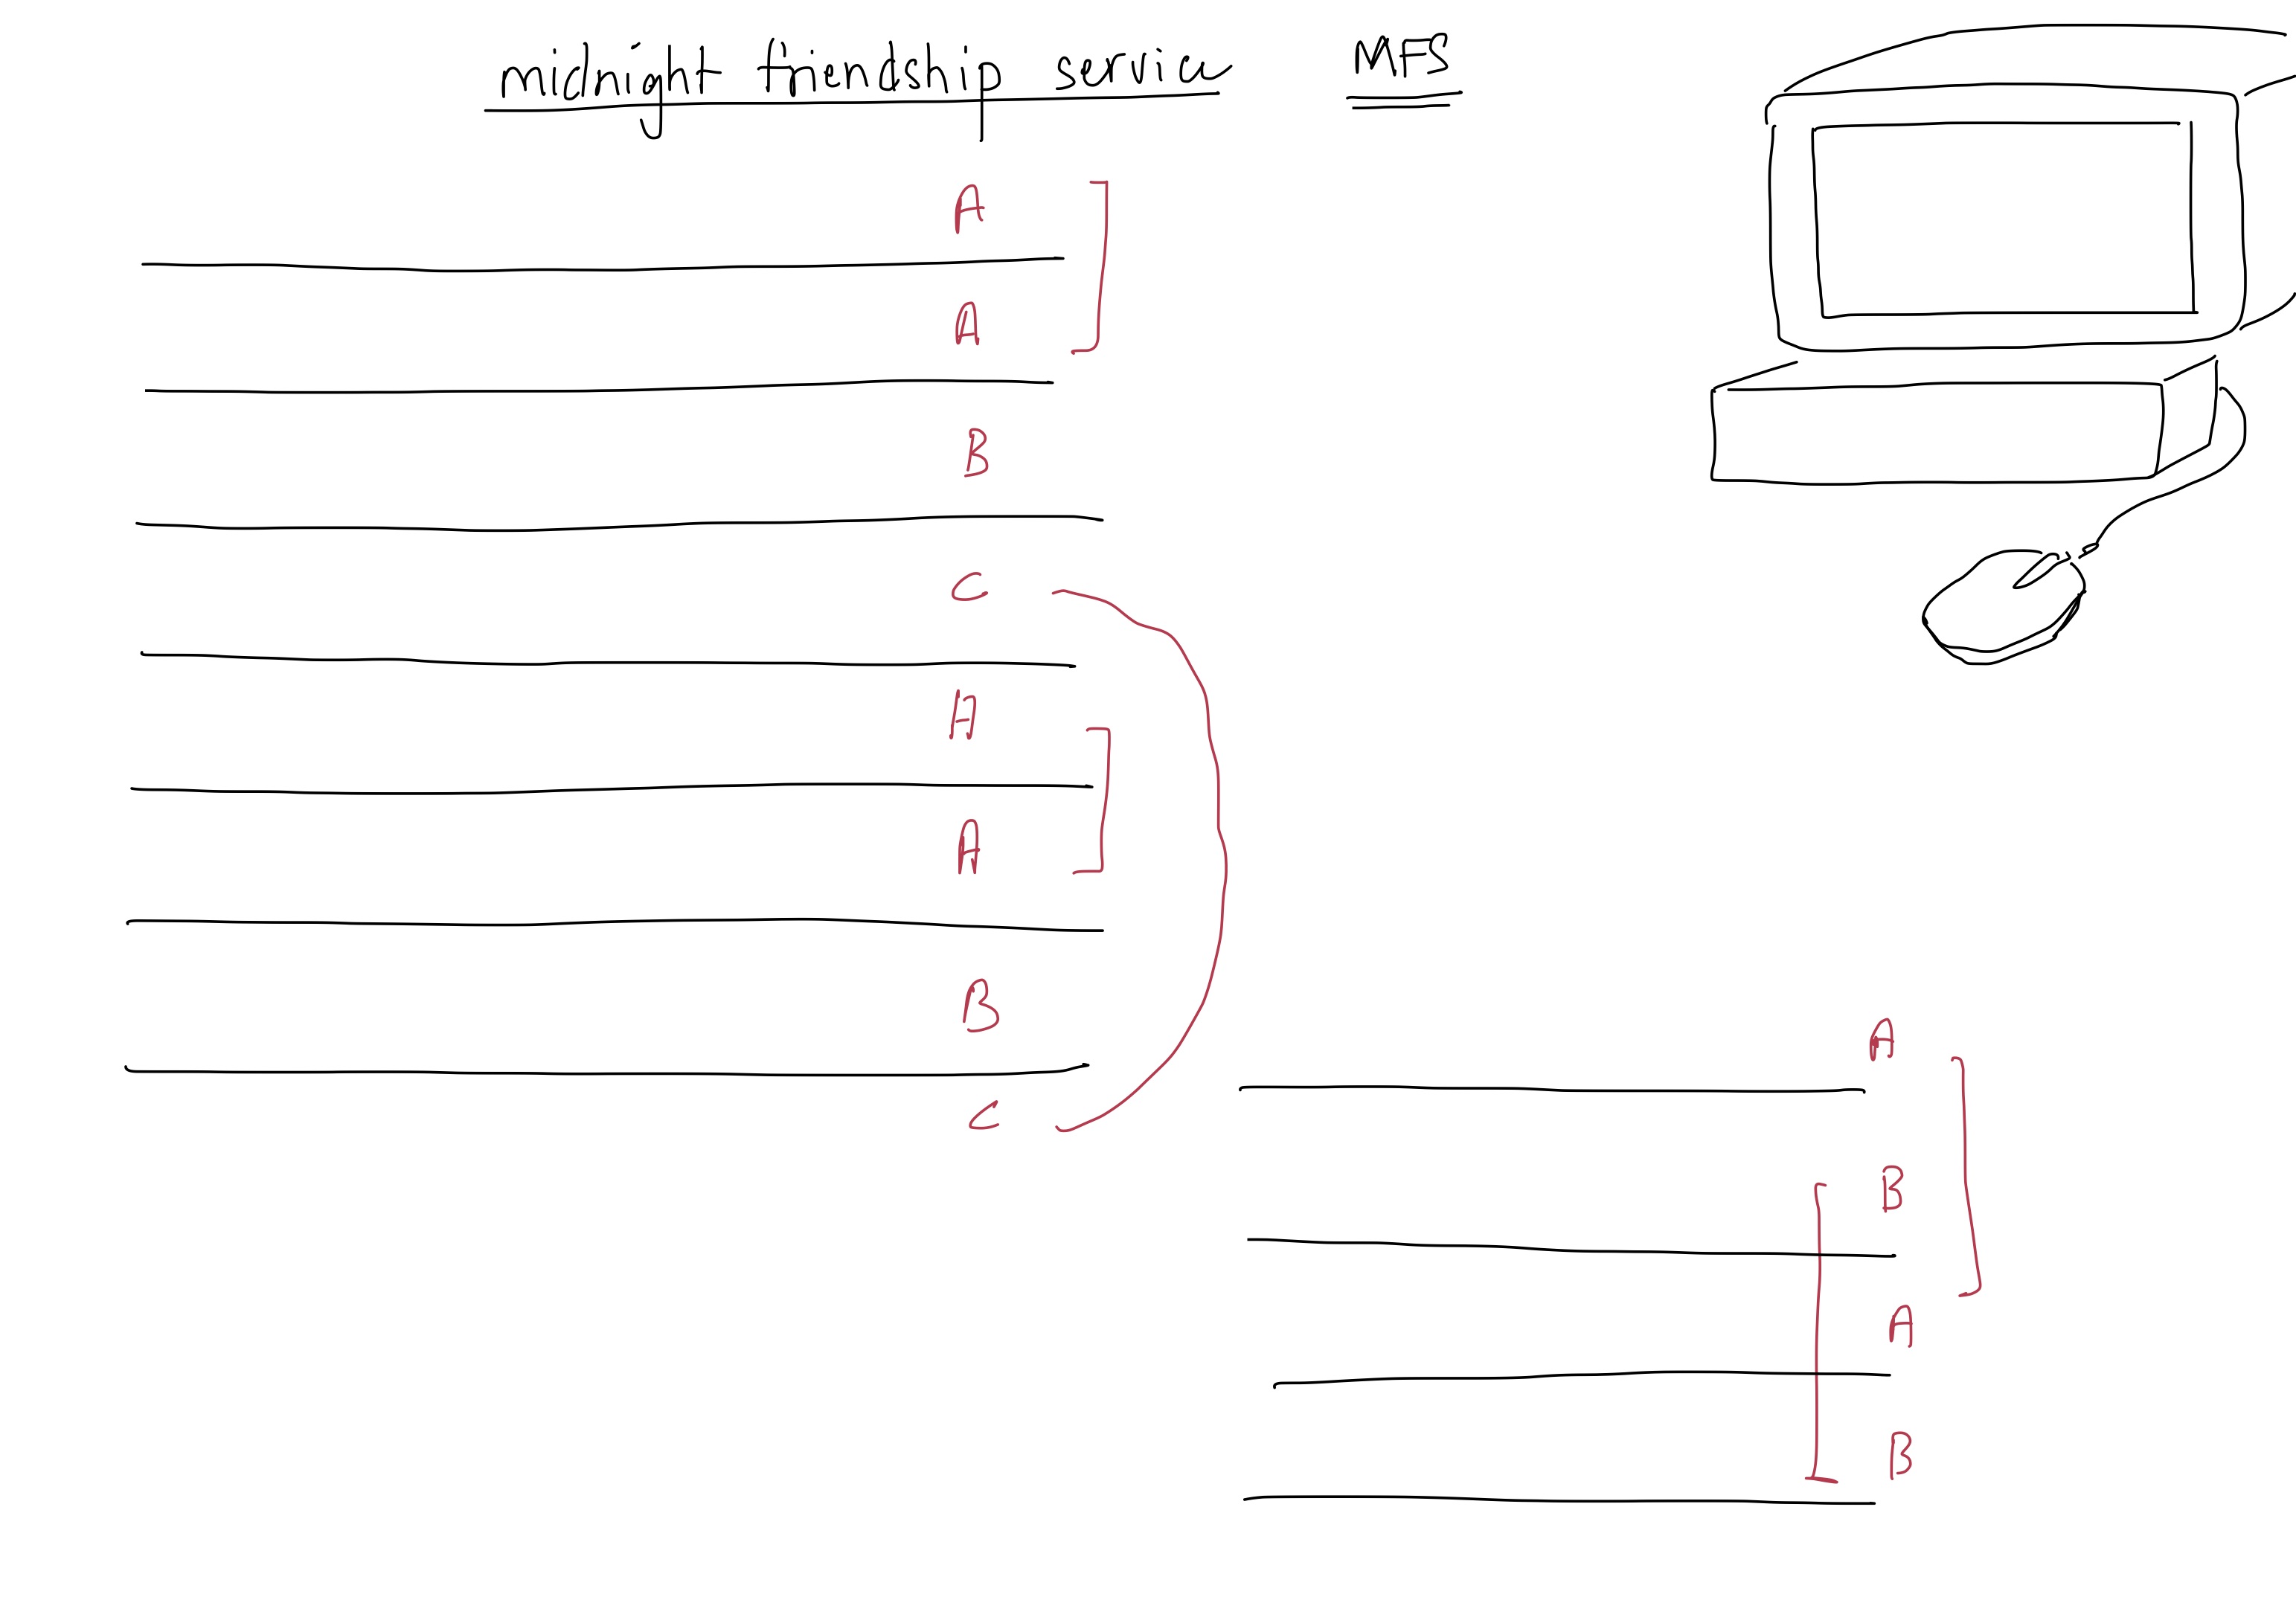 midnight friendship service MFS
A
A
B
C
A
A
B
C
A
B
A
B